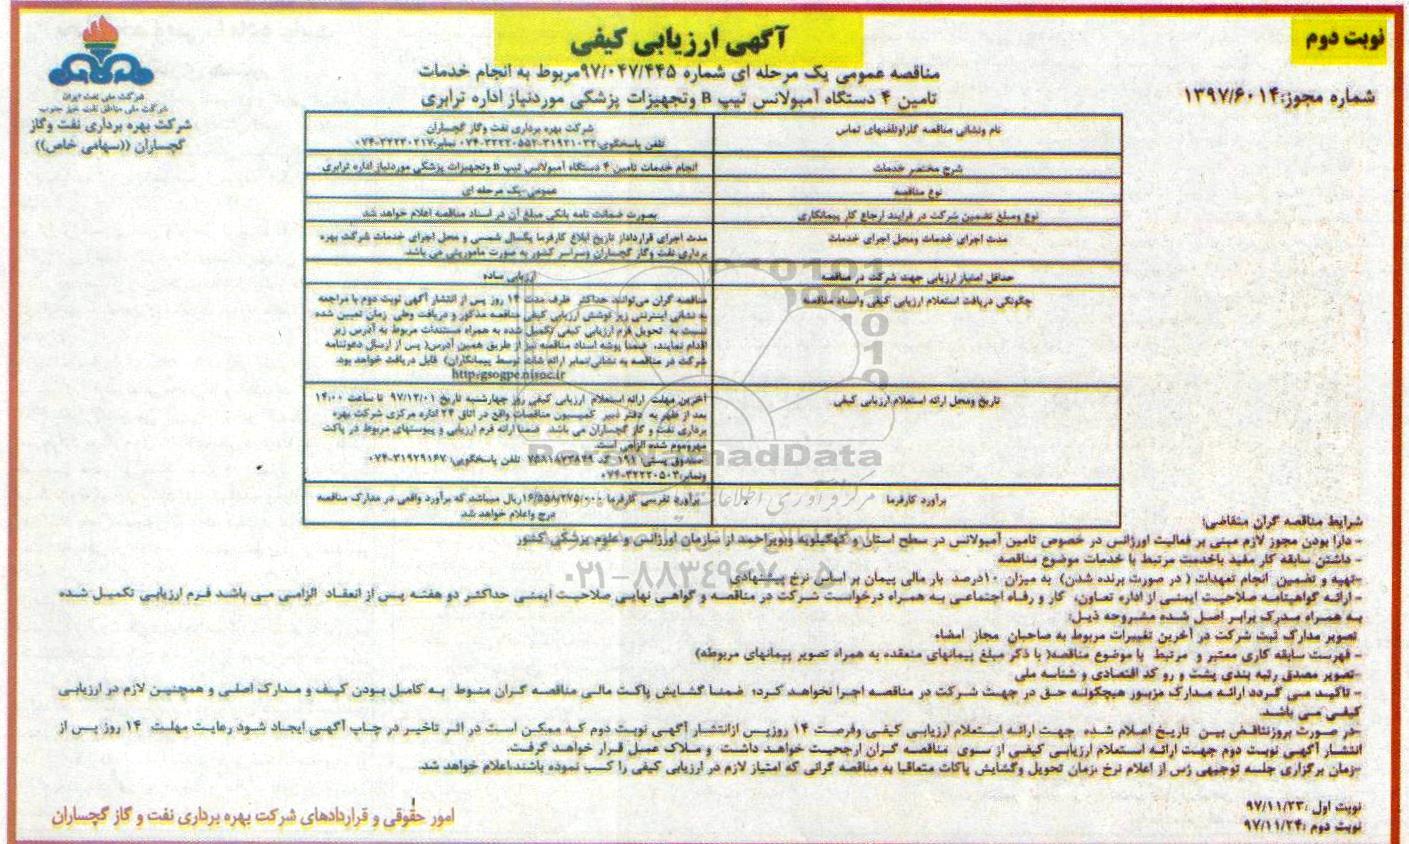 نوبت دوم
آگهی ارزیابی کیفی
مناقصه عمومی یک مرحله ای شماره ۹۷/۰۴۷/۴۴۵مربوط به انجام خدمات
تامین ۴ دستگاه آمبولانس تیپ B وتجهیزات پزشکی موردنیاز اداره ترابری
شماره مجوز:۱۳۹۷/۶۰۱۴
شرکت ملی نفت ایران
شرکت ملی مناطق نفت خیز جنوب
شرکت بهره برداری نفت وگاز
گچساران ((سهامی خاص))
نام ونشانی مناقصه گذاروتلفنهای تماس
شرکت بهره برداری نفت وگاز گچساران
تلفن پاسخگوی:۳۱۹۲۱۰۲۲-۳۲۲۲۰۵۵۲-۰۷۴ نمابر:۳۲۲۳۰۲۱۷-۰۷۴
شرح مختصر خدمات
انجام خدمات تامین ۴ دستگاه آمبولانس تیپ B وتجهیزات پزشکی موردنیاز اداره ترابری
نوع مناقصه
عمومی-یک مرحله ای
نوع ومبلغ تضمین شرکت در فرایند ارجاع کار پیمانکاری
بصورت ضمانت نامه بانکی مبلغ آن در اسناد مناقصه اعلام خواهد شد
مدت اجرای خدمات ومحل اجرای خدمات
مدت اجرای قرارداداز تاریخ ابلاغ کارفرما یکسال شمسی و محل اجرای خدمات شرکت بهره
برداری نفت وگاز گچساران وسراسر کشور به صورت ماموریتی می باشد.
حداقل امتیاز ارزیابی جهت شرکت در مناقصه
ارزیابی ساده
چگونگی دریافت استعلام ارزیابی کیفی واسناد مناقصه
مناقصه گران می‌توانند حداکثر ظرف مدت ۱۴ روز پس از انتشار آگهی نوبت دوم با مراجعه
به نشانی اینترنتی زیر نوشتن ارزیابی کیفی مناقصه مذکور و دریافت وطی زمان تعیین شده
نسبت به تحویل فرم ارزیابی کیفی تکمیل شده به همراه مستندات مربوط به آدرس زیر
اقدام نمایند. ضمنا پوشه اسناد مناقصه نیز از طریق همین آدرس( پس از ارسال دعوتنامه
شرکت در مناقصه به نشانی/نمابر ارائه شده توسط پیمانکاران) قابل دریافت خواهد بود.
http:gsogpc.nisoc.ir
تاریخ ومحل ارائه استعلام ارزیابی کیفی
آخرین مهلت ارائه استعلام ارزیابی کیفی روز چهارشنبه تاریخ ۹۷/۱۲/۰۱ تا ساعت ۱۴:۰۰
بعد از ظهر به دفتر دبیر کمیسیون مناقصات واقع در اتاق ۲۴ اداره مرکزی شرکت بهره
برداری نفت و گاز گچساران می باشد. ضمنا ارائه فرم ارزیابی و پیوستهای مربوط در پاکت
مهروموم شده الزامی است.
صندوق پستی: ۱۹۱ کد ۷۵۸۱۸۷۳۸۴۹ تلفن پاسخگویی: ۳۱۹۲۹۱۶۷-۰۷۴
ونمابر:۳۲۲۲۰۵۰۳-۰۷۴
برآورد کارفرما
برآورد تقریبی کارفرما ۱۶/۵۵۸/۲۷۵/۰۰۰ریال میباشد که برآورد واقعی در مدارک مناقصه
درج واعلام خواهد شد
ParsNamadData
۰۲۱-۸۸۳۴۹۶۷۰-۵
شرایط مناقصه گران متقاضی:
- دارا بودن مجوز لازم مبنی بر فعالیت اورژانس در خصوص تامین آمبولانس در سطح استان و کهگیلویه وبویراحمد از سازمان اورژانس و علوم پزشکی کشور
- داشتن سابقه کار مفید باخدمت مرتبط با خدمات موضوع مناقصه
-تهیه و تضمین انجام تعهدات ( در صورت برنده شدن) به میزان ۱۰درصد بار مالی پیمان بر اساس نرخ پیشنهادی
- ارائه گواهینامه صلاحیت ایمنی از اداره تعاون، کار و رفاه اجتماعی به همراه درخواست شرکت در مناقصه و گواهی نهایی صلاحیت ایمنی حداکثر دو هفته پس از انعقاد الزامی می باشد فرم ارزیابی تکمیل شده
به همراه مدرک برابر اصل شده مشروحه ذیل:
تصویر مدارک ثبت شرکت در آخرین تغییرات مربوط به صاحبان مجاز امضاء
- فهرست سابقه کاری معتبر و مرتبط با موضوع مناقصه( با ذکر مبلغ پیمانهای منعقده به همراه تصویر پیمانهای مربوطه)
-تصویر مصدق رتبه بندی پشت و رو کد اقتصادی و شناسه ملی
- تاکید می گردد ارائه مدارک مزبور هیچگونه حق در جهت شرکت در مناقصه اجرا نخواهد کرد؛ ضمنا گشایش پاکت مالی مناقصه گران منوط به کامل بودن کیف و مدارک اصلی و همچنین لازم در ارزیابی
کیفی می باشد.
-در صورت بروزتناقض بین تاریخ اعلام شده جهت ارائه استعلام ارزیابی کیفی وفرصت ۱۴ روزپس ازانتشار آگهی نوبت دوم که ممکن است در اثر تاخیر در چاپ آگهی ایجاد شود رعایت مهلت ۱۴ روز پس از
انتشار آگهی نوبت دوم جهت ارائه استعلام ارزیابی کیفی از سوی مناقصه گران ارجحیت خواهد داشت و ملاک عمل قرار خواهد گرفت.
-زمان برگزاری جلسه توجیهی ژس از اعلام نرخ ،زمان تحویل وگشایش پاکات متعاقبا به مناقصه گرانی که امتیاز لازم در ارزیابی کیفی را کسب نموده باشند،اعلام خواهد شد.
نوبت اول :۹۷/۱۱/۲۳
نوبت دوم :۹۷/۱۱/۲۴
امور حقوقی و قراردادهای شرکت بهره برداری نفت و گاز گچساران